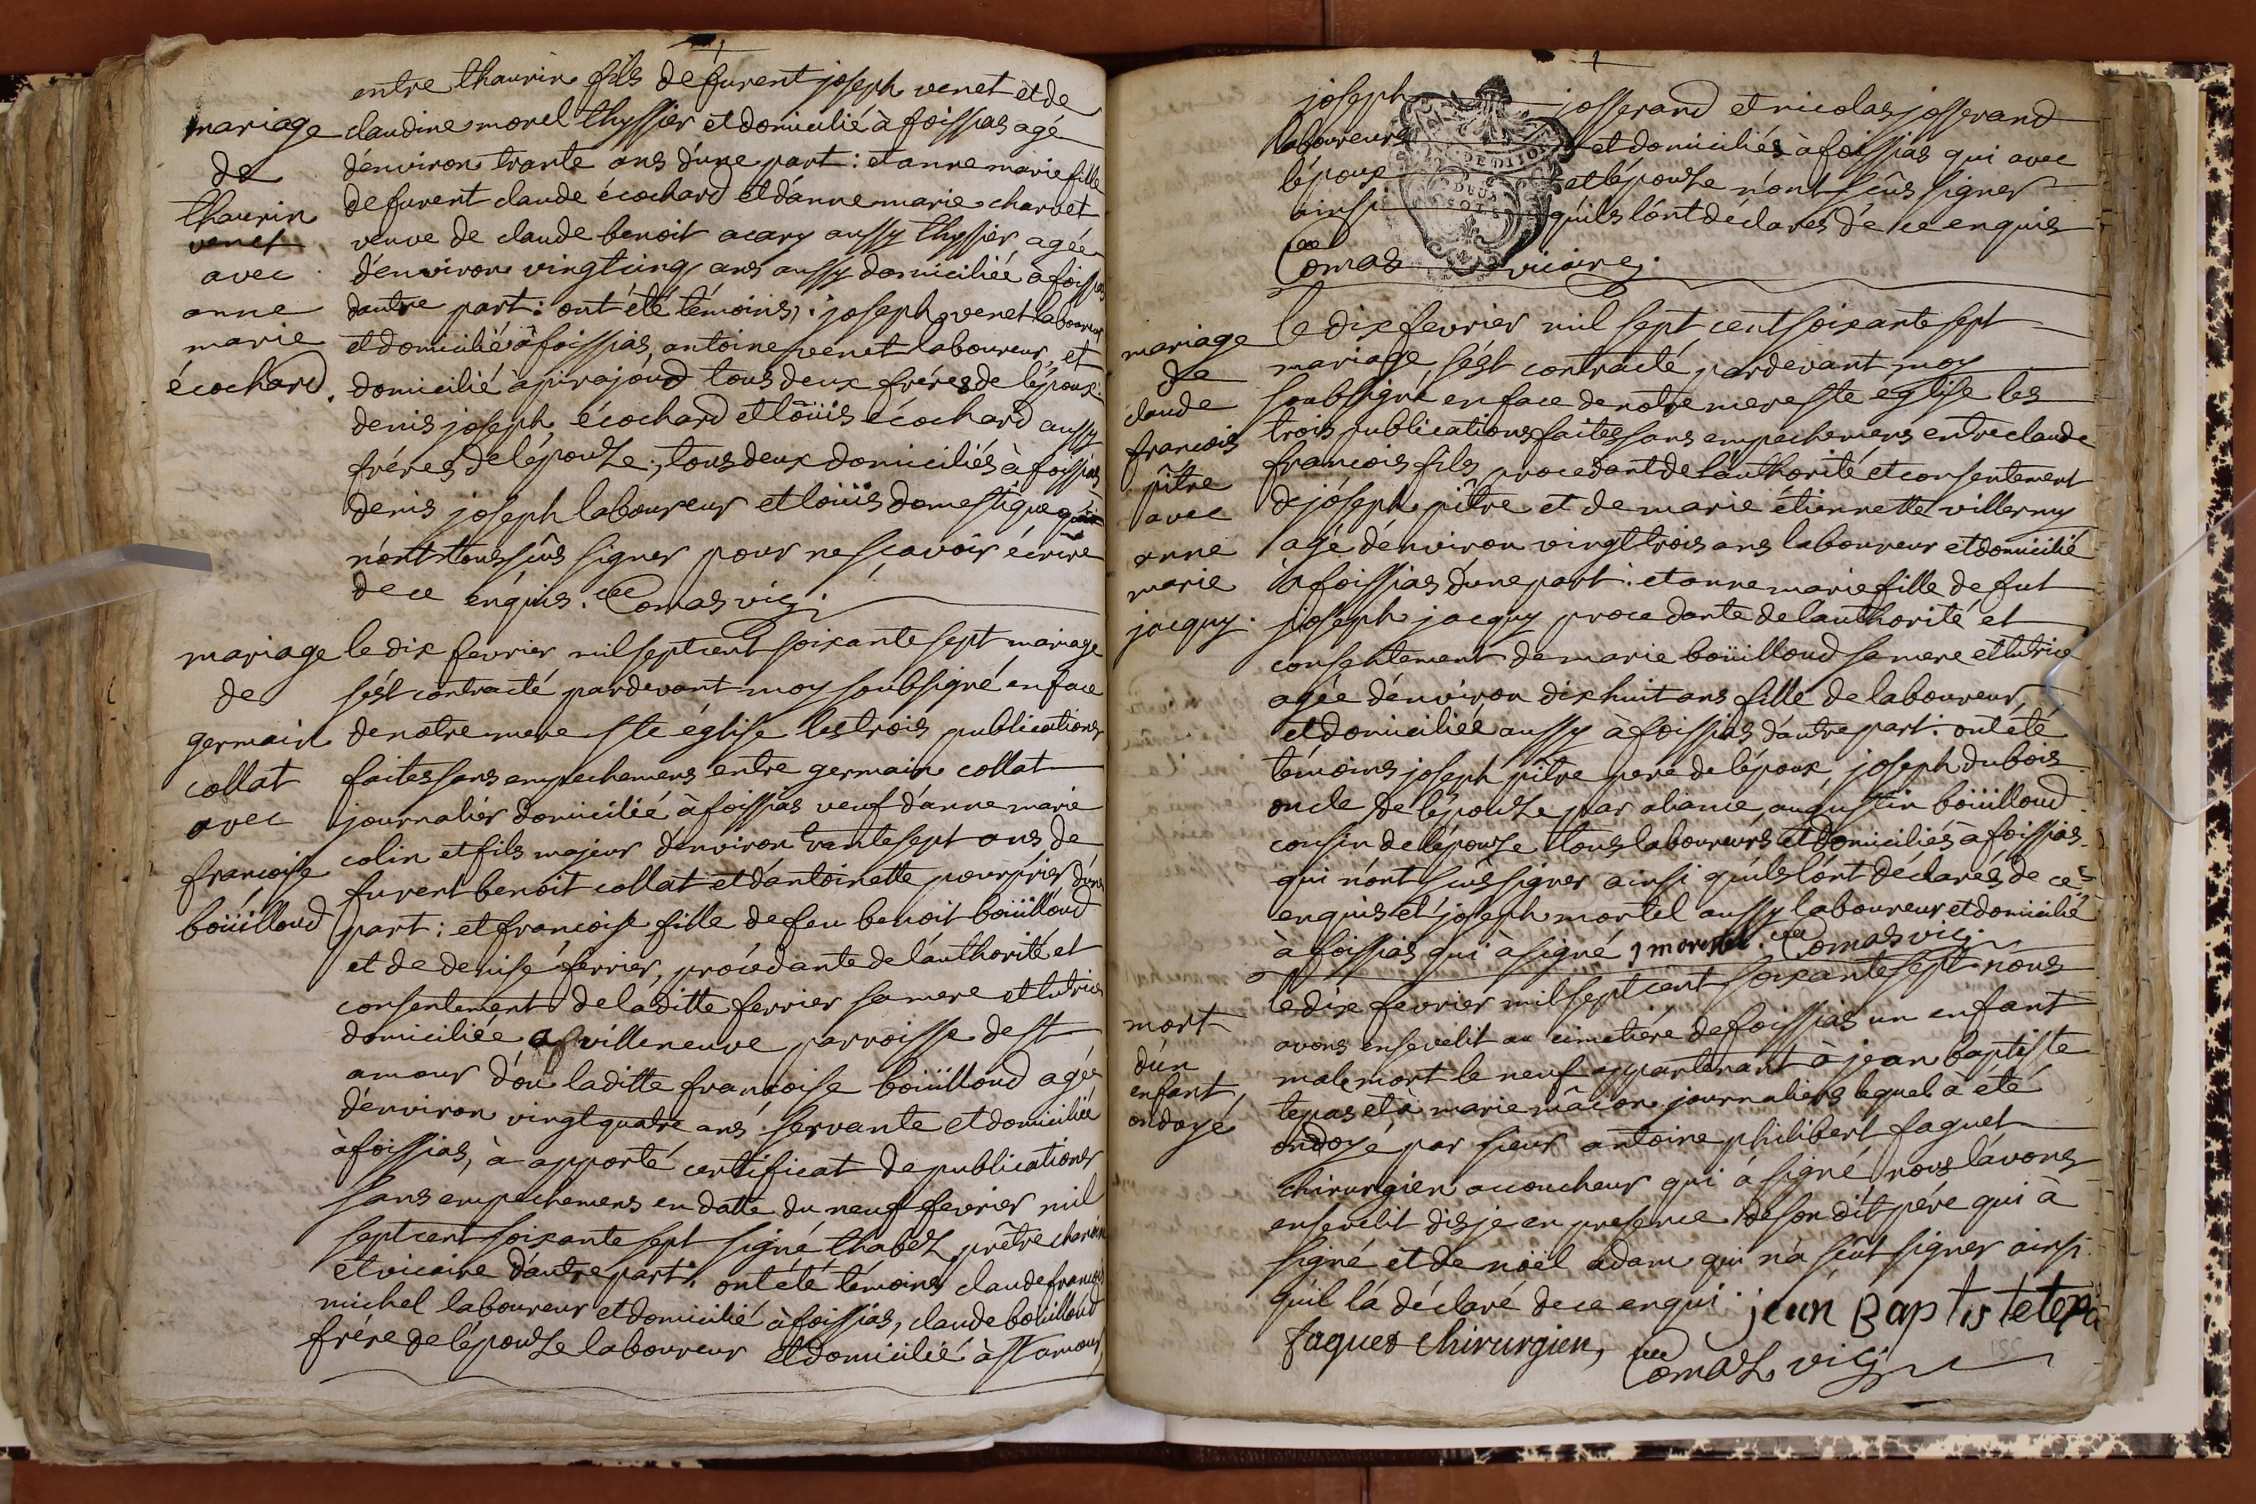 entre thaurin fils de furent joseph venet et de
mariage
de
thaurin
venet
avec
anne
marie
écochard.
claudine morel thyssier et domicilié à foissias agé
d'environ trante ans d'une part : et anne marie fille
de furent claude écochard et d'anne marie charvet
veuve de claude benoit acary aussy thyssier agée
d'environ vingt cinq ans aussy domiciliée a foissias
dautre part : ont été témoins, joseph venet laboureur
et domicilié à foissias, antoine venet laboureur et
domicilié à pirajoud tous deux fréres de l'époux.
denis joseph écochard et loüis écochard aussy
fréres de l'épouse, tous deux domiciliés à foissias
denis joseph laboureur et loüis domestique qui
n'ont tous sçûs signer pour ne sçavoir écrire
de ce enquis. Comas vic.
mariage
de
germain
collat
avec
francoise
boüilloud
le dix fevrier mil sept cent soixante sept mariage
s'est contracté pardevant moy soubsigné en face
de notre mere ste église les trois publications
faites sans empechemens entre germain collat
journalier domicilié à foissias veuf d'anne marie
colin et fils majeur d'environ trante sept ans de
furent benoit collat et d'antoinette pourprier d'une
part : et francoise fille de feu benoit boüilloud
et de denise ferrier, procédante de l'authorité et
consentement de laditte ferrier sa mere et tutrice
domiciliée a villeneuve parroisse de st
amour d'ou laditte francoise boüilloud agée
d'environ vingt quatre ans servante et domiciliée
à foissias, à apporté certificat de publications
sans empechemens en datte du neuf fevrier mil
sept cent soixante sept signé thabez prêtre chanoine
et vicaire d'autre part : ont été témoins claude francois
michel laboureur et domicilié à foissias, claude boüilloud
frére de l'épouse laboureur et domicilié à st amour,
joseph josserand et nicolas josserand
laboureurs et domiciliés à foissias qui avec
l'époux et l'épouse n'ont sçûs signer
ainsi qu'ils l'ont déclarés de ce enquis
Comas vicaire.
DE DIJON
DEUX
SOLS
mariage
de
claude
francois
pître
avec
anne
marie
jacquy.
le dix fevrier mil sept cent soixante sept
mariage s'est contracté pardevant moy
soubsigné en face de notre mere ste église les
trois publications faites sans empechemens entre claude
francois fils procedant de l'authorité et consentement
de joseph pître et de marie étiennette villermy
agé d'environ vingt trois ans laboureur et domicilié
à foissias d'une part : et anne marie fille de fut
joseph jacquy procedante de l'authorité et
consentement de marie boüilloud sa mere et tutrice
agée d'environ dix huit ans fille de laboureur,
et domiciliée aussy à foissias d'autre part : ont été
témoins joseph pître pere de l'époux, joseph dubois
oncle de l'épouse par aliance augustin boüilloud
cousin de l'épouse tous laboureurs et domiciliés à foissias
qui n'ont sçûs signer ainsi qu'ils l'ont déclarés de ce
enquis et joseph mortel aussy laboureur et domicilié
à foissias qui à signé J mortel. Comas vic.
mort
d'un
enfant
ondoyé
le dix fevrier mil sept cent soixante sept nous
avons ensevelit au cimetiére de foissias un enfant
male mort le neuf appartenant à jean baptiste
tepas et à marie mâcon journaliers lequel à été
ondoyé par sieur antoine philibert faguet
chirurgien accoucheur qui à signé nous l'avons
ensevelit disje en presence de son dit pére qui à
signé et de noël adam qui n'a sçût signer ainsi
qu'il l'a déclaré de ce enqui. jean Baptiste tepa
faguet chirurgien, Comas vic.